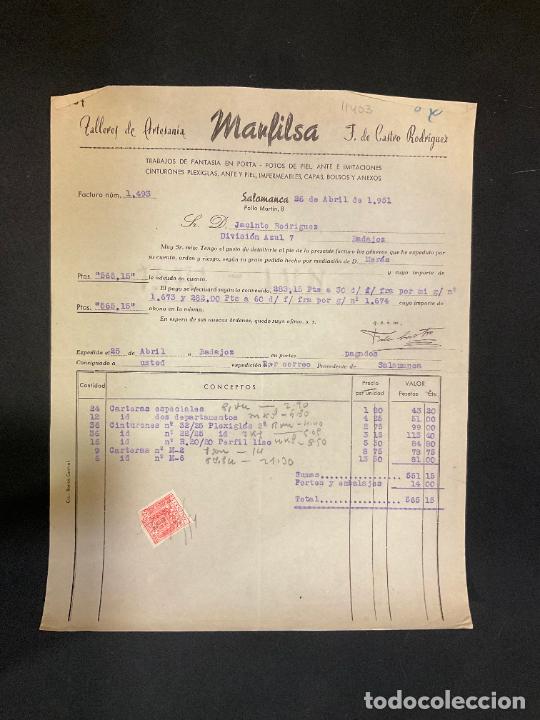 11403
Talleres de Artesania Marfilsa J. de Castro Rodríguez
TRABAJOS DE FANTASIA EN PORTA - FOTOS DE PIEL, ANTE E IMITACIONES
CINTURONES PLEXIGLAS, ANTE Y PIEL, IMPERMEABLES, CAPAS, BOLSOS Y ANEXOS
Factura núm. 1.493 Salamanca 26 de Abril de 1.951
Pollo Martín, 8
Sr. D. Jacinto Rodriguez
División Azul 7 Badajoz
Muy Sr. mío: Tengo el gusto de detallarle al pie de la presente factura los géneros que he expedido por
su cuenta, orden y riesgo, según su grato pedido hecho por mediación de D. Merás
Ptas. "565,15" y cuyo importe de
le adeudo en cuenta.
El pago se efectuará según lo convenido. 283,15 Pts a 30 d/ f/ fra por mi g/ nº
1.673 y 282,00 Pts a 60 d/ f/ fra por g/ nº 1.674 cuyo importe de
Ptas. "565,15" abono en la misma.
En espera de sus nuevas órdenes, quedo suyo afmo. s. s.
q. e. s. m.
Expedido el 25 de Abril a Badajoz en portes pagados
Consignado a usted expedición Por correo Procedente de Salamanca
Cantidad CONCEPTOS Precio por unidad VALOR Pesetas Cts.
24 Carteras especiales 1 80 43 20
12 id dos departamentos 4 25 51 00
36 Cinturones nº 32/25 Plexiglás 2ª 2 75 99 00
36 id nº 22/25 id 3 15 113 40
16 id nº 2,20/20 Perfil liso 5 30 84 80
9 Carteras nº M-2 8 75 78 75
6 id nº M-6 13 50 81 00
Sumas 551 15
Portes y embalajes 14 00
Total 565 15
todocoleccion
todocoleccion.net